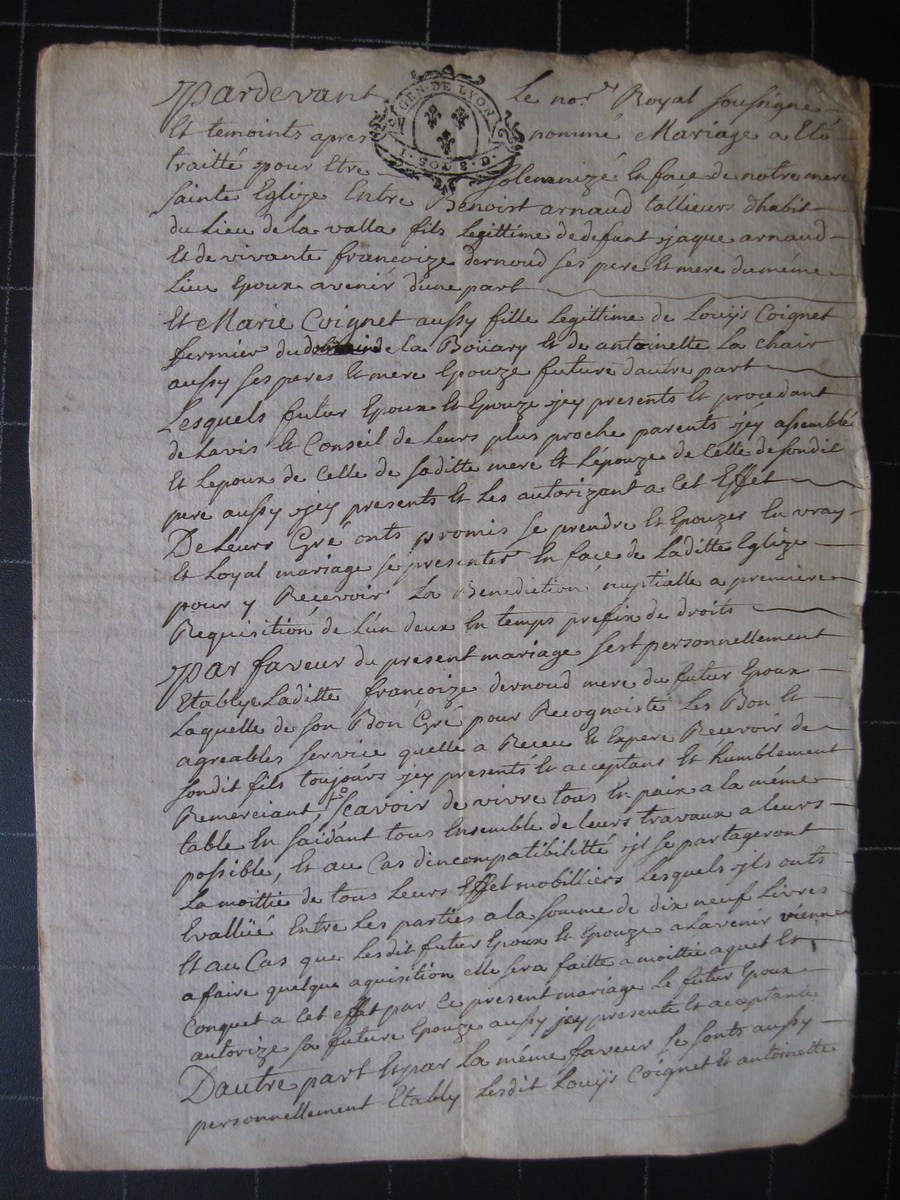 GEN. DE LYON
1. SOL 8. D.
Pardevant Le nore Royal soussigne
Et temoints apres nommé Mariage a Eté
traitté pour Etre Solemnizé En face de notre mere
Sainte Eglize Entre Benoist arnaud tallieurs dhabit
du Lieu de la valla fils Legittime de defunt jaque arnaud
Et de vivante francoize dernoud ses pere Et mere du méme
Lieu Epoux avenir dune part
Et Marie Coignet aussy fille Legitime de Louijs Coignet
fermier du de la Boüary Et de antoinette La chair
aussy ses peres Et mere Epouze future dautre part
Lesquels futur Epoux Et Epouze jey presents Et procedant
de Lavis Et Conseil de Leurs plus proche parents jéy assemblé
Et Lepoux de Celle de saditte mere Et Lépouze de Celle de sondit
pere aussy jey presents Et Les autorizant a Cet Effet
De Leurs Gré onts promis se prendre Et Epouzer En vray
Et Loyal mariage se presenter En face de Laditte Eglize
pour y Recevoir La Benediction nuptialle a premiere
Requisition de L'un deux En temps prefix de droits
Par faveur du present mariage sest personnellement
Etablye Laditte francoize dernoud mere du futur Epoux
Laquelle de son Bon Gré pour Recognoiste Les Bon Et
agreables service quelle a Receu Et Espere Recevoir de
sondit fils toujours jey presents Et acceptans Et humblement
Remerciant, 1o Scavoir de vivre tous En paix a la méme
table En saidant tous Ensemble de Leurs travaux a Leurs
possible, Et au Cas dincompatibilitté jls se partageront
La moittie de tous Leurs Effet mobilliers Lesquels jls onts
Evallüé Entre Les parties a la somme de dix neuf Livres
Et au Cas que Lesdit futur Epoux Et Epouze a Lavenir vienne
a faire quelque aquisition elle sera faitte a moittie aquet Et
Conquet a Cet effet par Ce present mariage Le futur Epoux
autorize sa future Epouze aussy jey presente Et acceptante
D'autre part Et par La méme faveur Se sonts aussy
personnellement Etably Lesdit Louijs Coignet Et antoinette